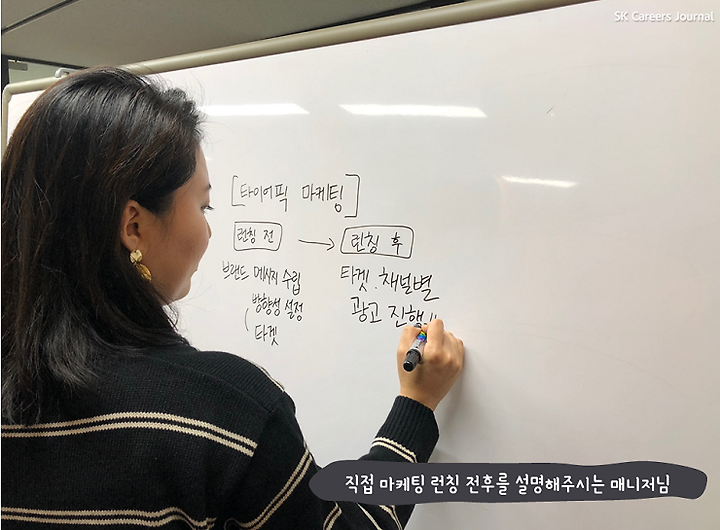 SK Careers Journal
[타이어픽 마케팅]
런칭 전 → 런칭 후
브랜드 메시지 수립
방향성 설정
타겟
타겟. 채널별
광고 진행
직접 마케팅 런칭 전후를 설명해주시는 매니저님